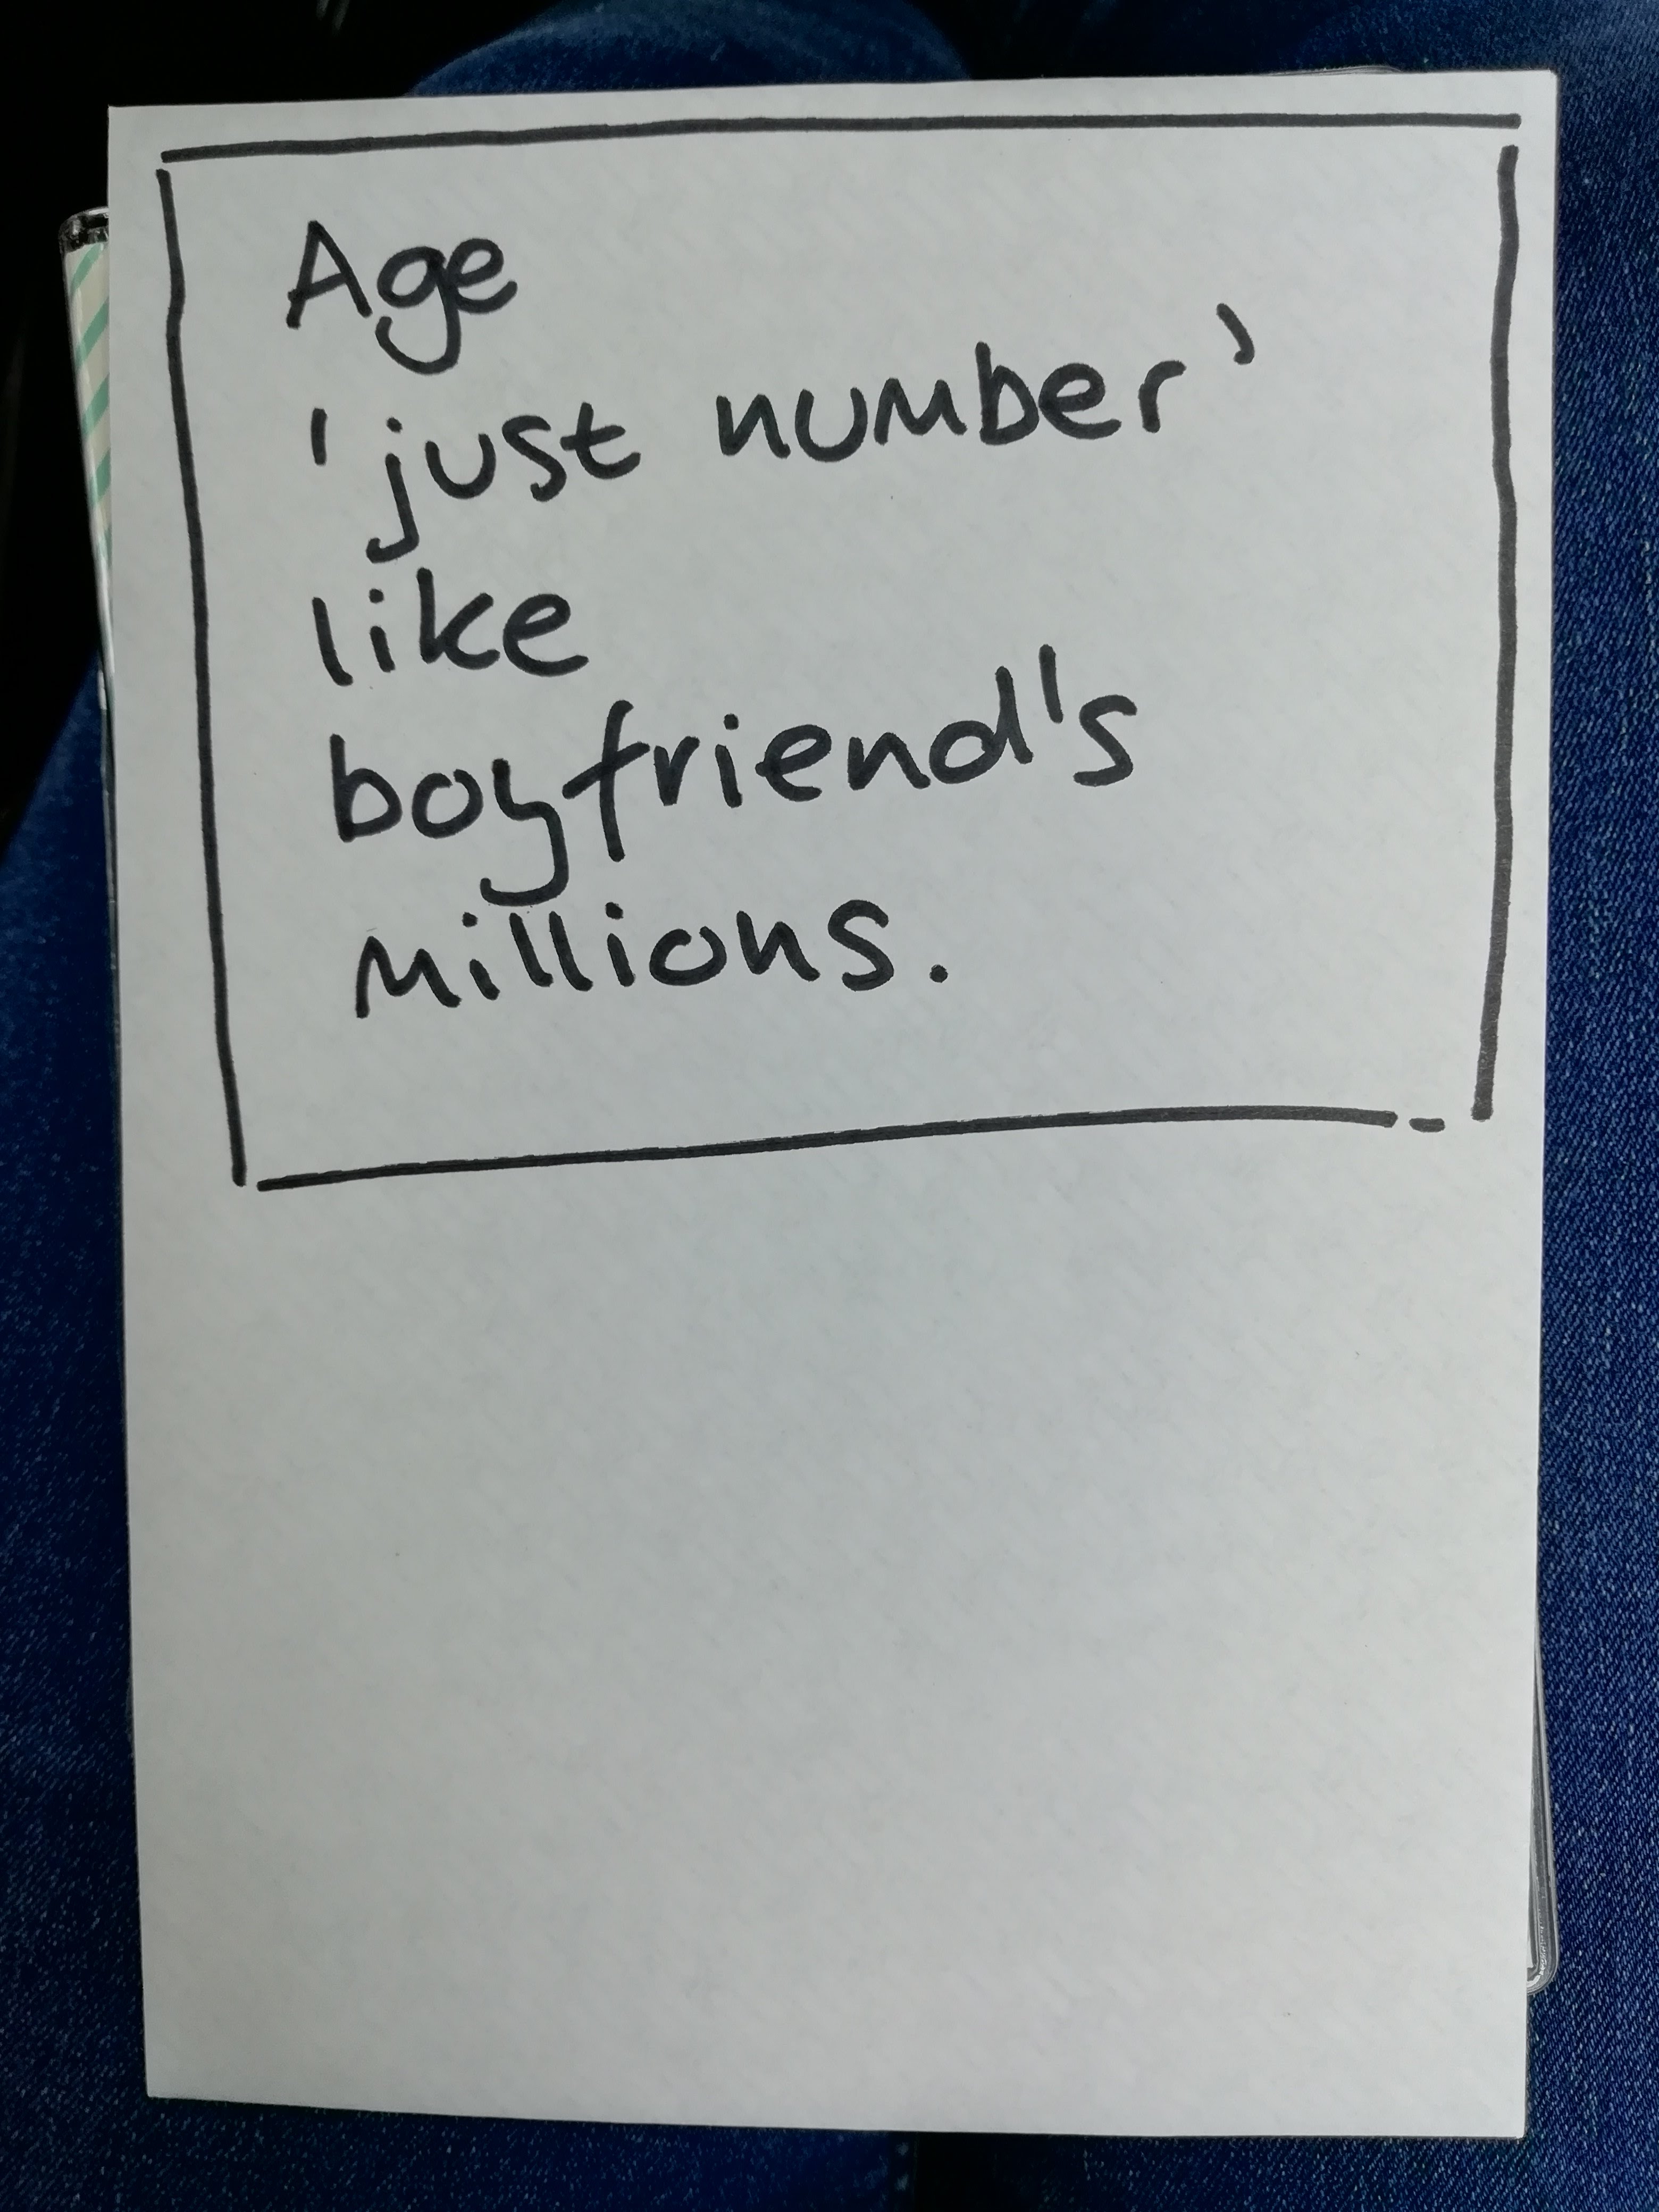 Age
'just number'
like
boyfriend's
millions.